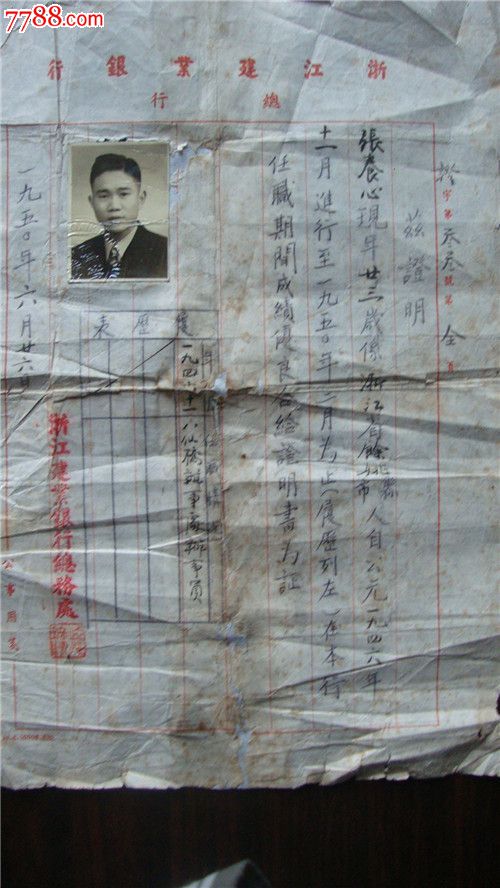 7788.com
浙江建業銀行
總行
字第叁叁號第全頁
茲證明
張養心現年廿三歲係浙江省餘姚縣市人自公元一九四六年
十一月進行至一九五〇年二月為止(履歷列左)在本行
任職期間成績優良合給證明書為証
履歷表
一九五〇年六月廿六日
浙江建業銀行總務處
公事用箋